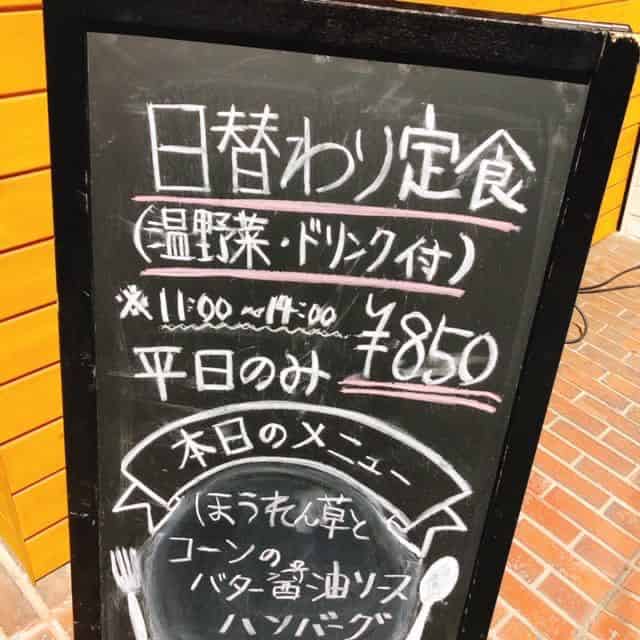 日替わり定食
(温野菜・ドリンク付)
※11:00~14:00
平日のみ ¥850
本日のメニュー
ほうれん草と
コーンの
バター醤油ソース
ハンバーグ